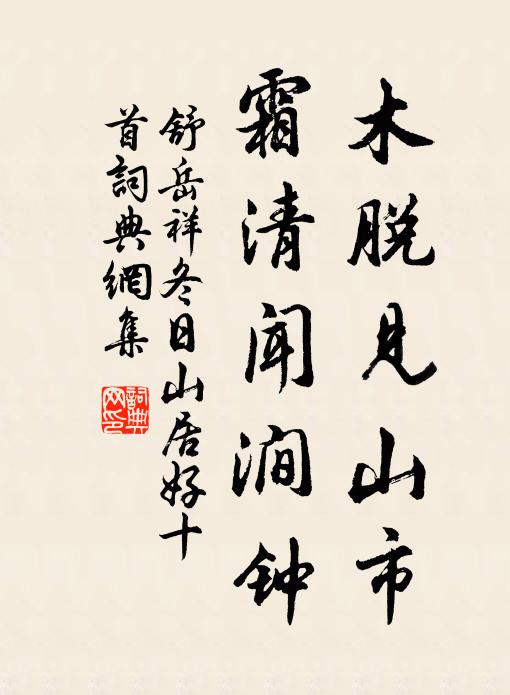 木脱见山市
霜清闻涧钟
舒岳祥冬日山居好十
首詞典網集
詞典
网印